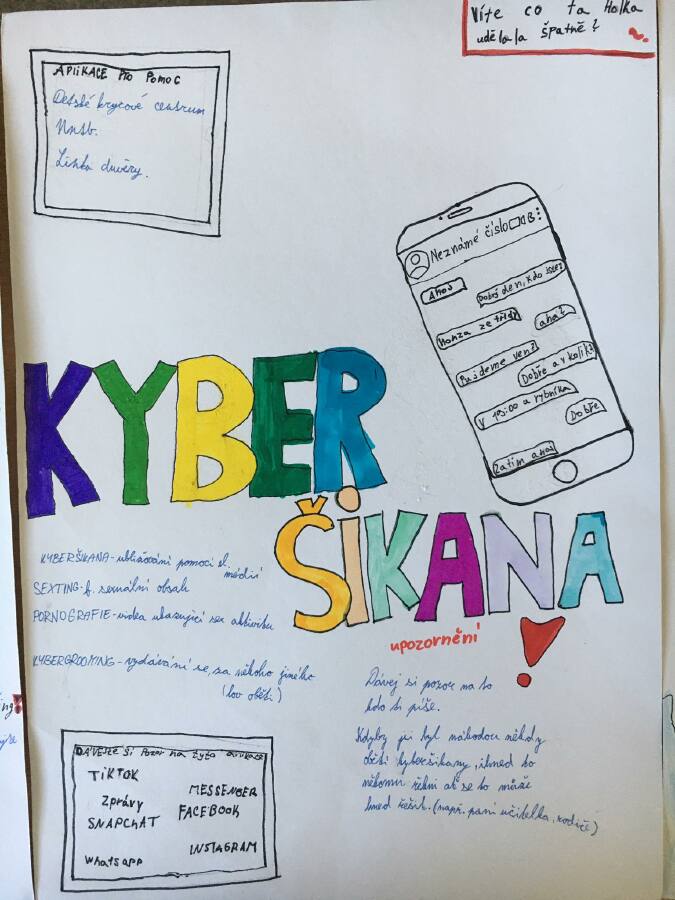 Víte co ta Holka
udělala špatně?
APLIKACE PRO POMOC
Dětské krizové centrum
Nntb.
Linka důvěry.
Neznámé číslo
Ahoj
Dobrý den, kdo jste?
Honza ze třídy
aha?
Pujdeme ven?
Dobře a v kolik?
V 19:00 a rybníka
Dobře
Zatím ahoj
KYBER
ŠIKANA
KYBERŠIKANA - ubližování pomocí el.
médií
SEXTING - f. sexuální obsah
PORNOGRAFIE - videa ukazující sex aktivitu
KYBERGROOMING - vydávání se, za někoho jiného
(lov obětí)
upozornění
!
Dávej si pozor na to
kdo ti píše.
Kdyby jsi byl náhodou někdy
obětí kyberšikany, ihned to
někomu řekni ať se to může
hned řešit. (např. paní učitelka, rodiče)
DÁVEJTE SI POZOR NA tyto aplikace
TikTOK
MESSENGER
Zprávy
FACEBOOK
SNAPCHAT
INSTAGRAM
Whatsapp